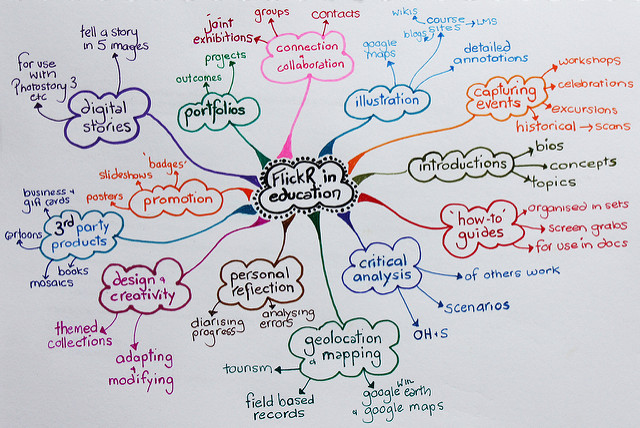 FlickR in
education
connection
&
collaboration
groups
contacts
joint
exhibitions
illustration
google
maps
blogs
wikis
course
sites
LMS
detailed
annotations
capturing
events
workshops
celebrations
excursions
historical → scans
introductions
bios
concepts
topics
'how-to'
guides
organised in sets
screen grabs
for use in docs
critical
analysis
of others work
scenarios
OH+S
geolocation
& mapping
google earth
win
& google maps
field based
records
tourism
personal
reflection
analysing
errors
diarising
progress
design &
creativity
adapting
&
modifying
themed
collections
3rd party
products
books
mosaics
cartoons
business &
gift cards
promotion
posters
slideshows
'badges'
digital
stories
for use
with
Photostory 3
etc
tell a story
in 5 images
portfolios
outcomes
projects